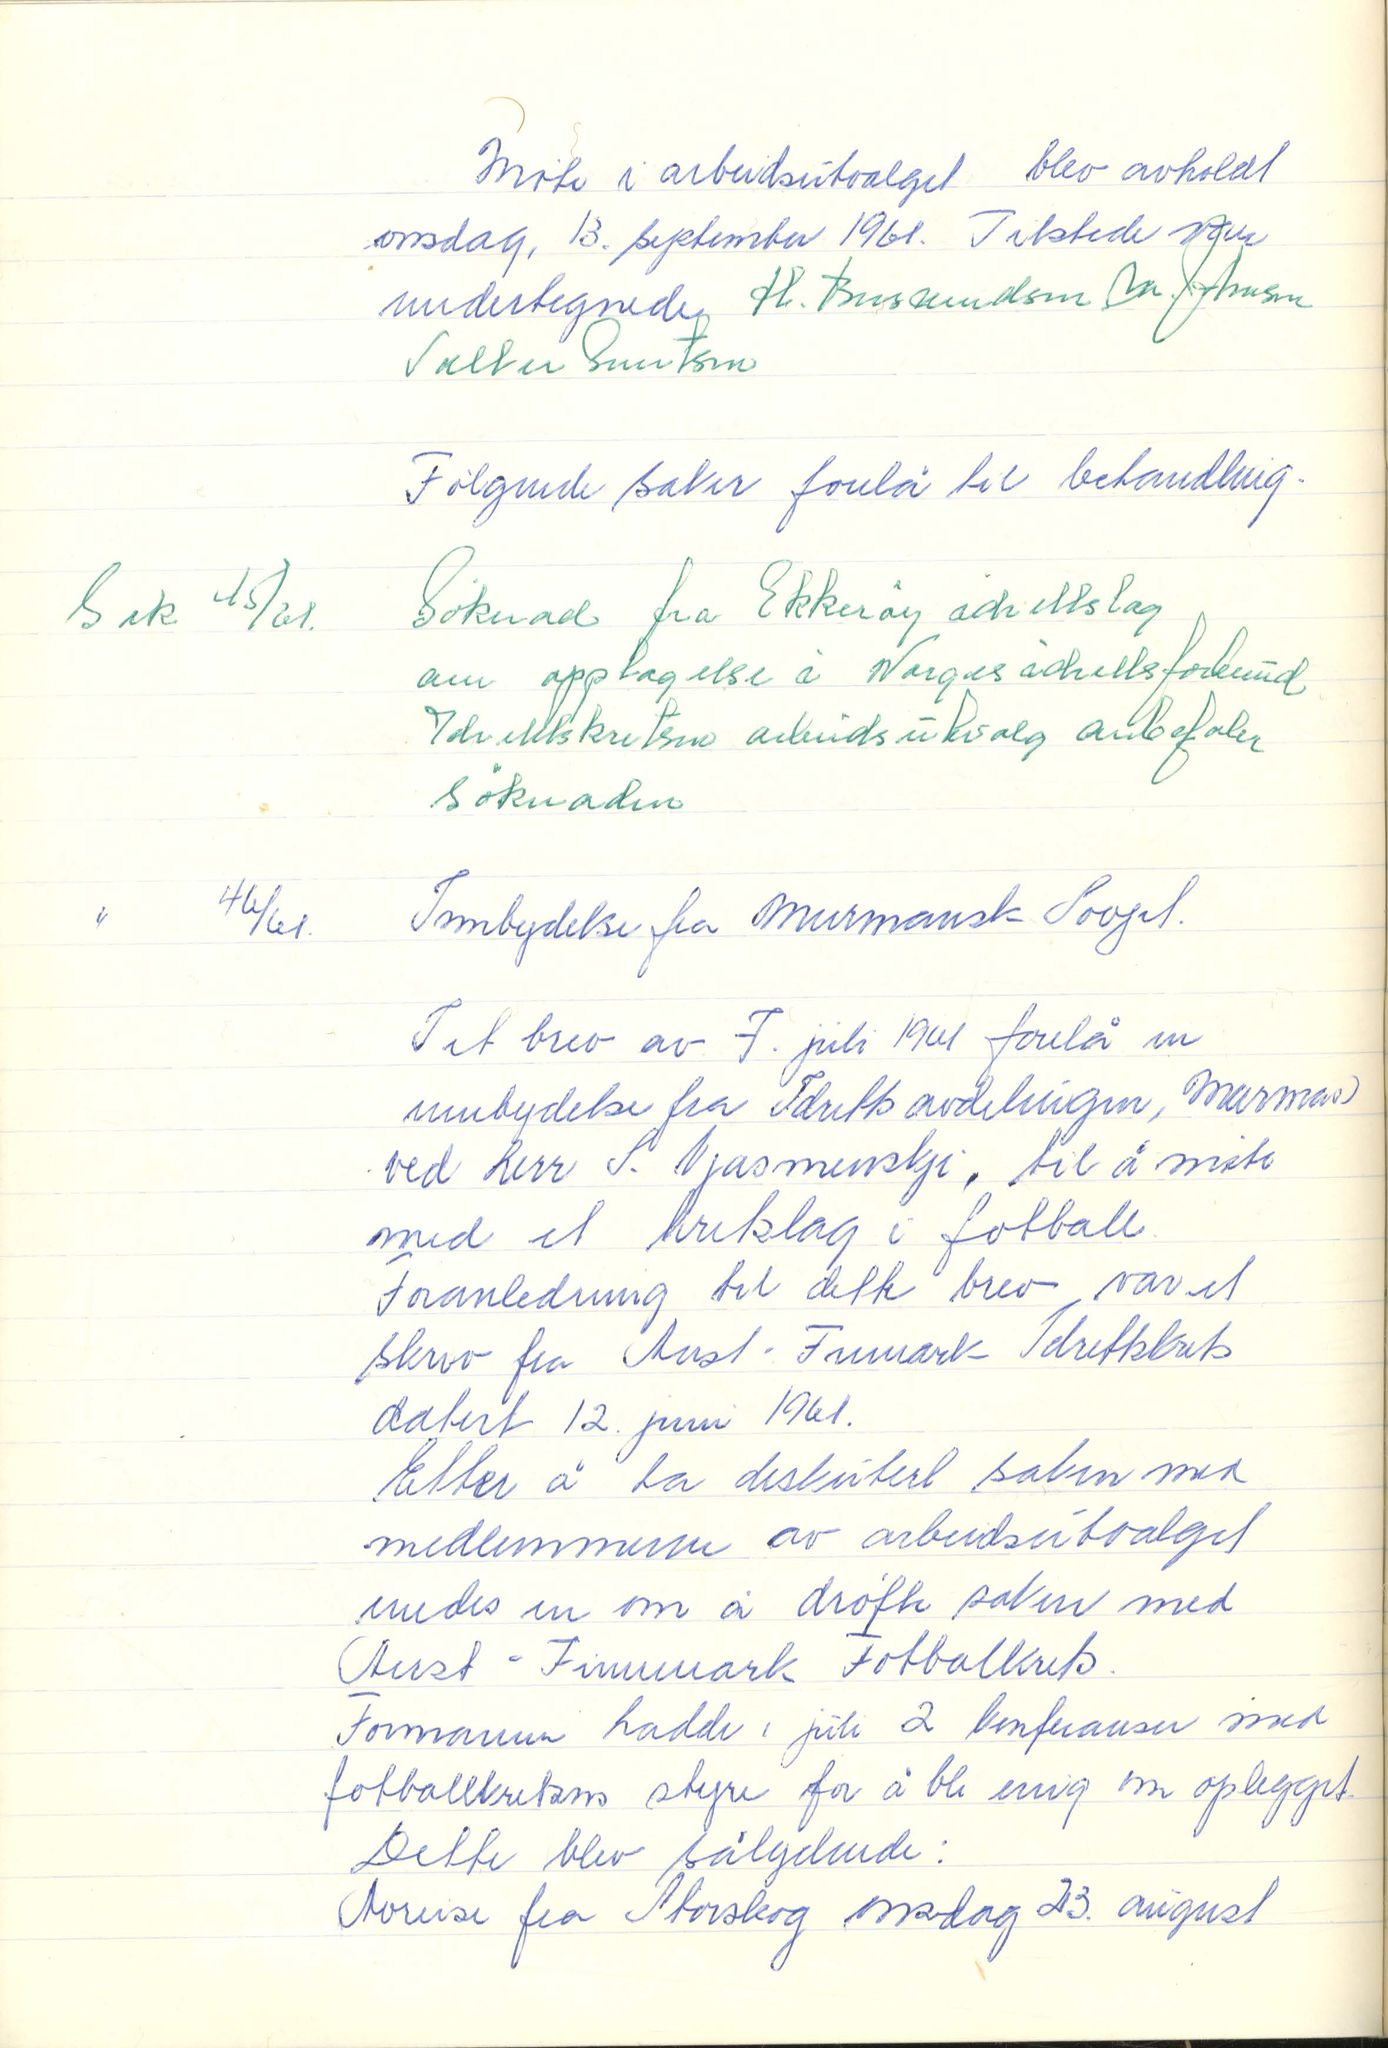 Möte i arbeidsutvalget blev avholdt
onsdag, 13. september 1961. Tilstede var
undertegnede,
Følgende saker forelå til behandling.
Sak 45/61. Söknad fra Ekkeröy idrettslag
om opptagelse i Norges idrettsforbund
Idrettskretsens arbeidsutvalg anbefaler
söknaden
" 46/61. Innbydelse fra Murmansk Sovjet.
I et brev av 7. juli 1961 forelå en
innbydelse fra Idretts avdelingen, Murmansk
ved herr S. Vjasmenskji, til å møte
med et kretslag i fotball.
Foranledning til dette brev var et
skriv fra Aust-Finnmark Idrettskrets
datert 12. juni 1961.
Etter å ha diskutert saken med
medlemmene av arbeidsutvalget
enedes en om å dröfte saken med
Aust-Finnmark Fotballkrets.
Formannen hadde i juli 2 konferanser med
fotballkretsens styre for å bli enig om oplegget.
Dette blev sålydende:
Avreise fra Storskog onsdag 23. august